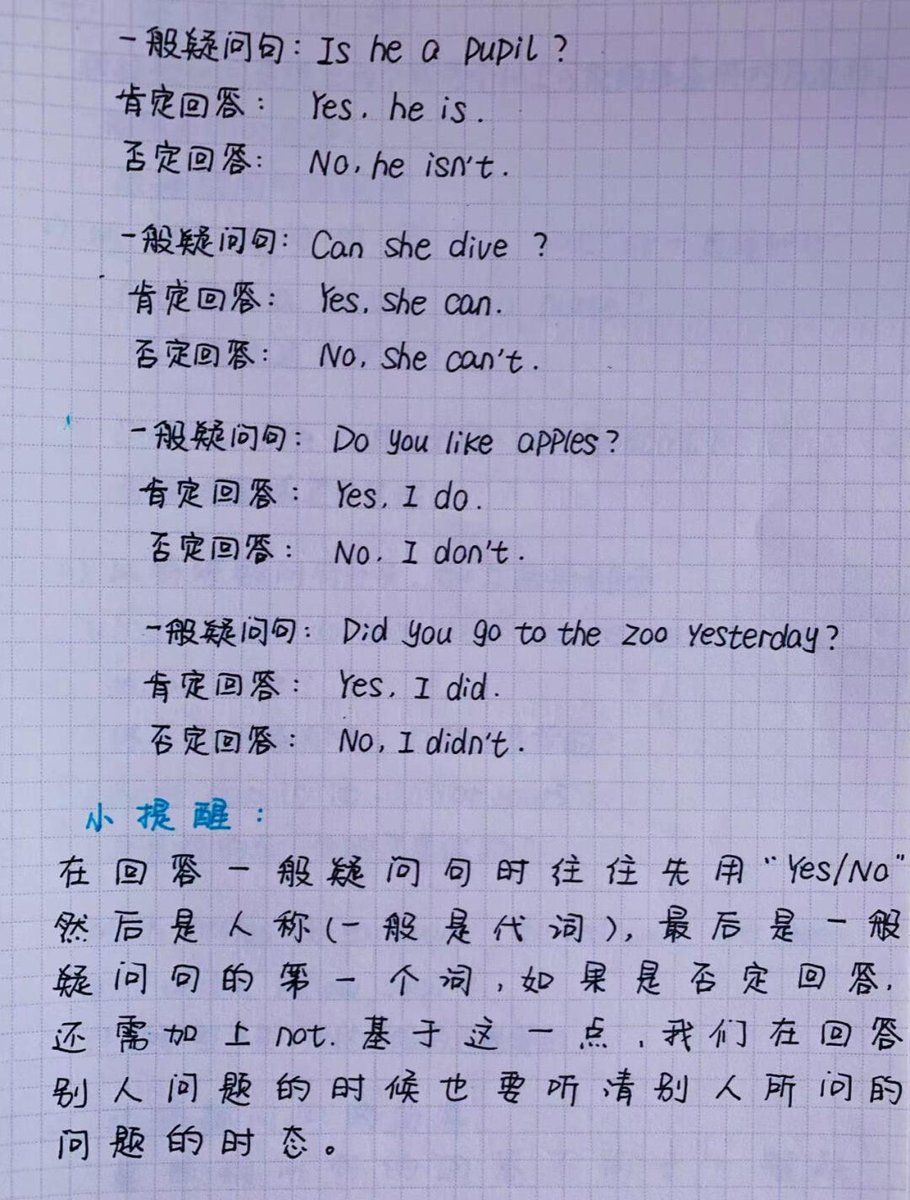 一般疑问句: Is he a pupil?
肯定回答: Yes, he is.
否定回答: No, he isn't.
一般疑问句: Can she dive ?
肯定回答: Yes, she can.
否定回答: No, she can't.
一般疑问句: Do you like apples?
肯定回答: Yes, I do.
否定回答: No, I don't.
一般疑问句: Did you go to the zoo yesterday?
肯定回答: Yes, I did.
否定回答: No, I didn't.
小提醒:
在回答一般疑问句时往往先用“Yes/No”
然后是人称(一般是代词),最后是一般
疑问句的第一个词,如果是否定回答,
还需加上not.基于这一点,我们在回答
别人问题的时候也要听清别人所问的
问题的时态。